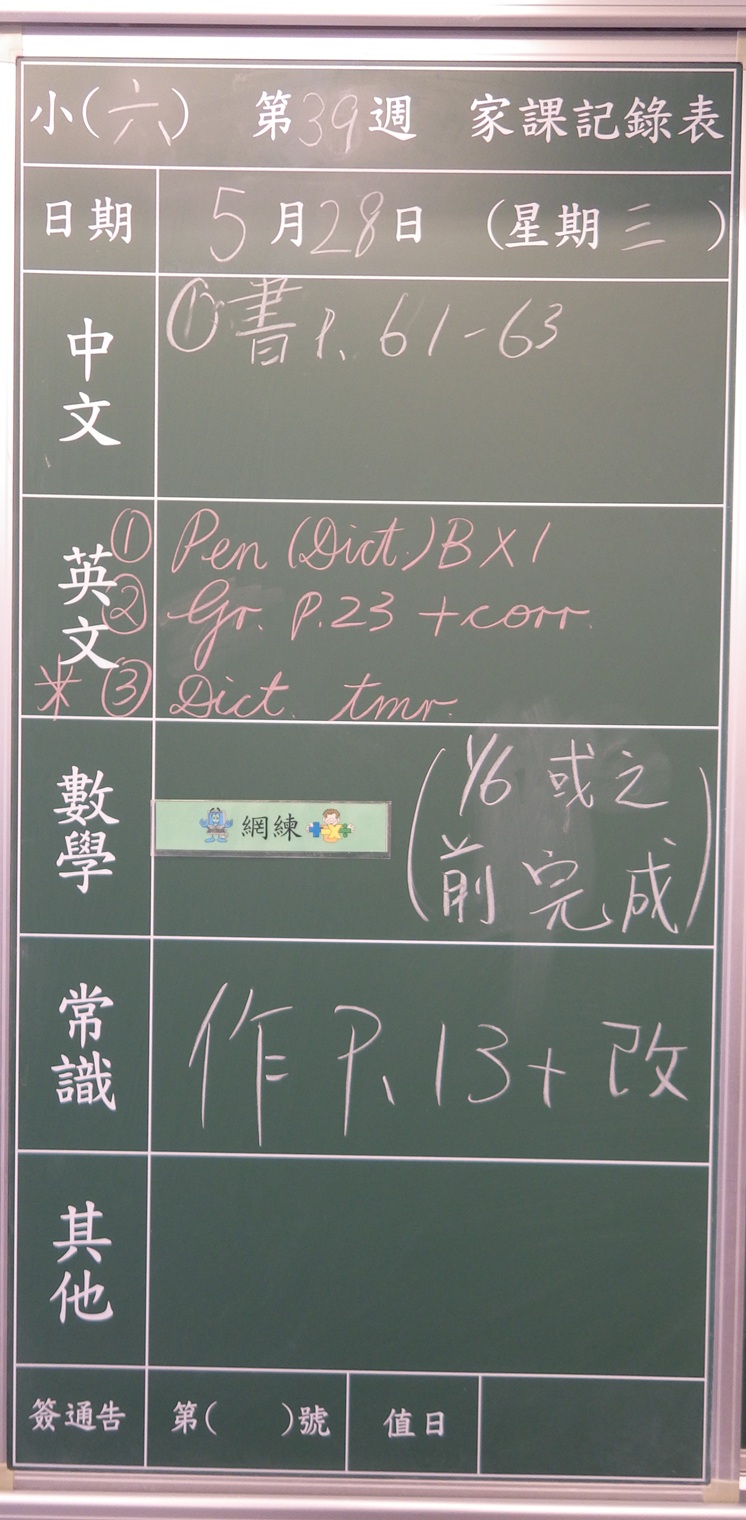 小(六) 第39週 家課記錄表
日期 5月28日 (星期三)
中文 ①書P. 61-63
英文 ① Pen (Dict.) B X 1
② Gr. P.23 + corr.
* ③ Dict. tmr.
數學 網練 (1/6 或之
前完成)
常識 作P. 13 + 改
其他
簽通告 第( )號 值日